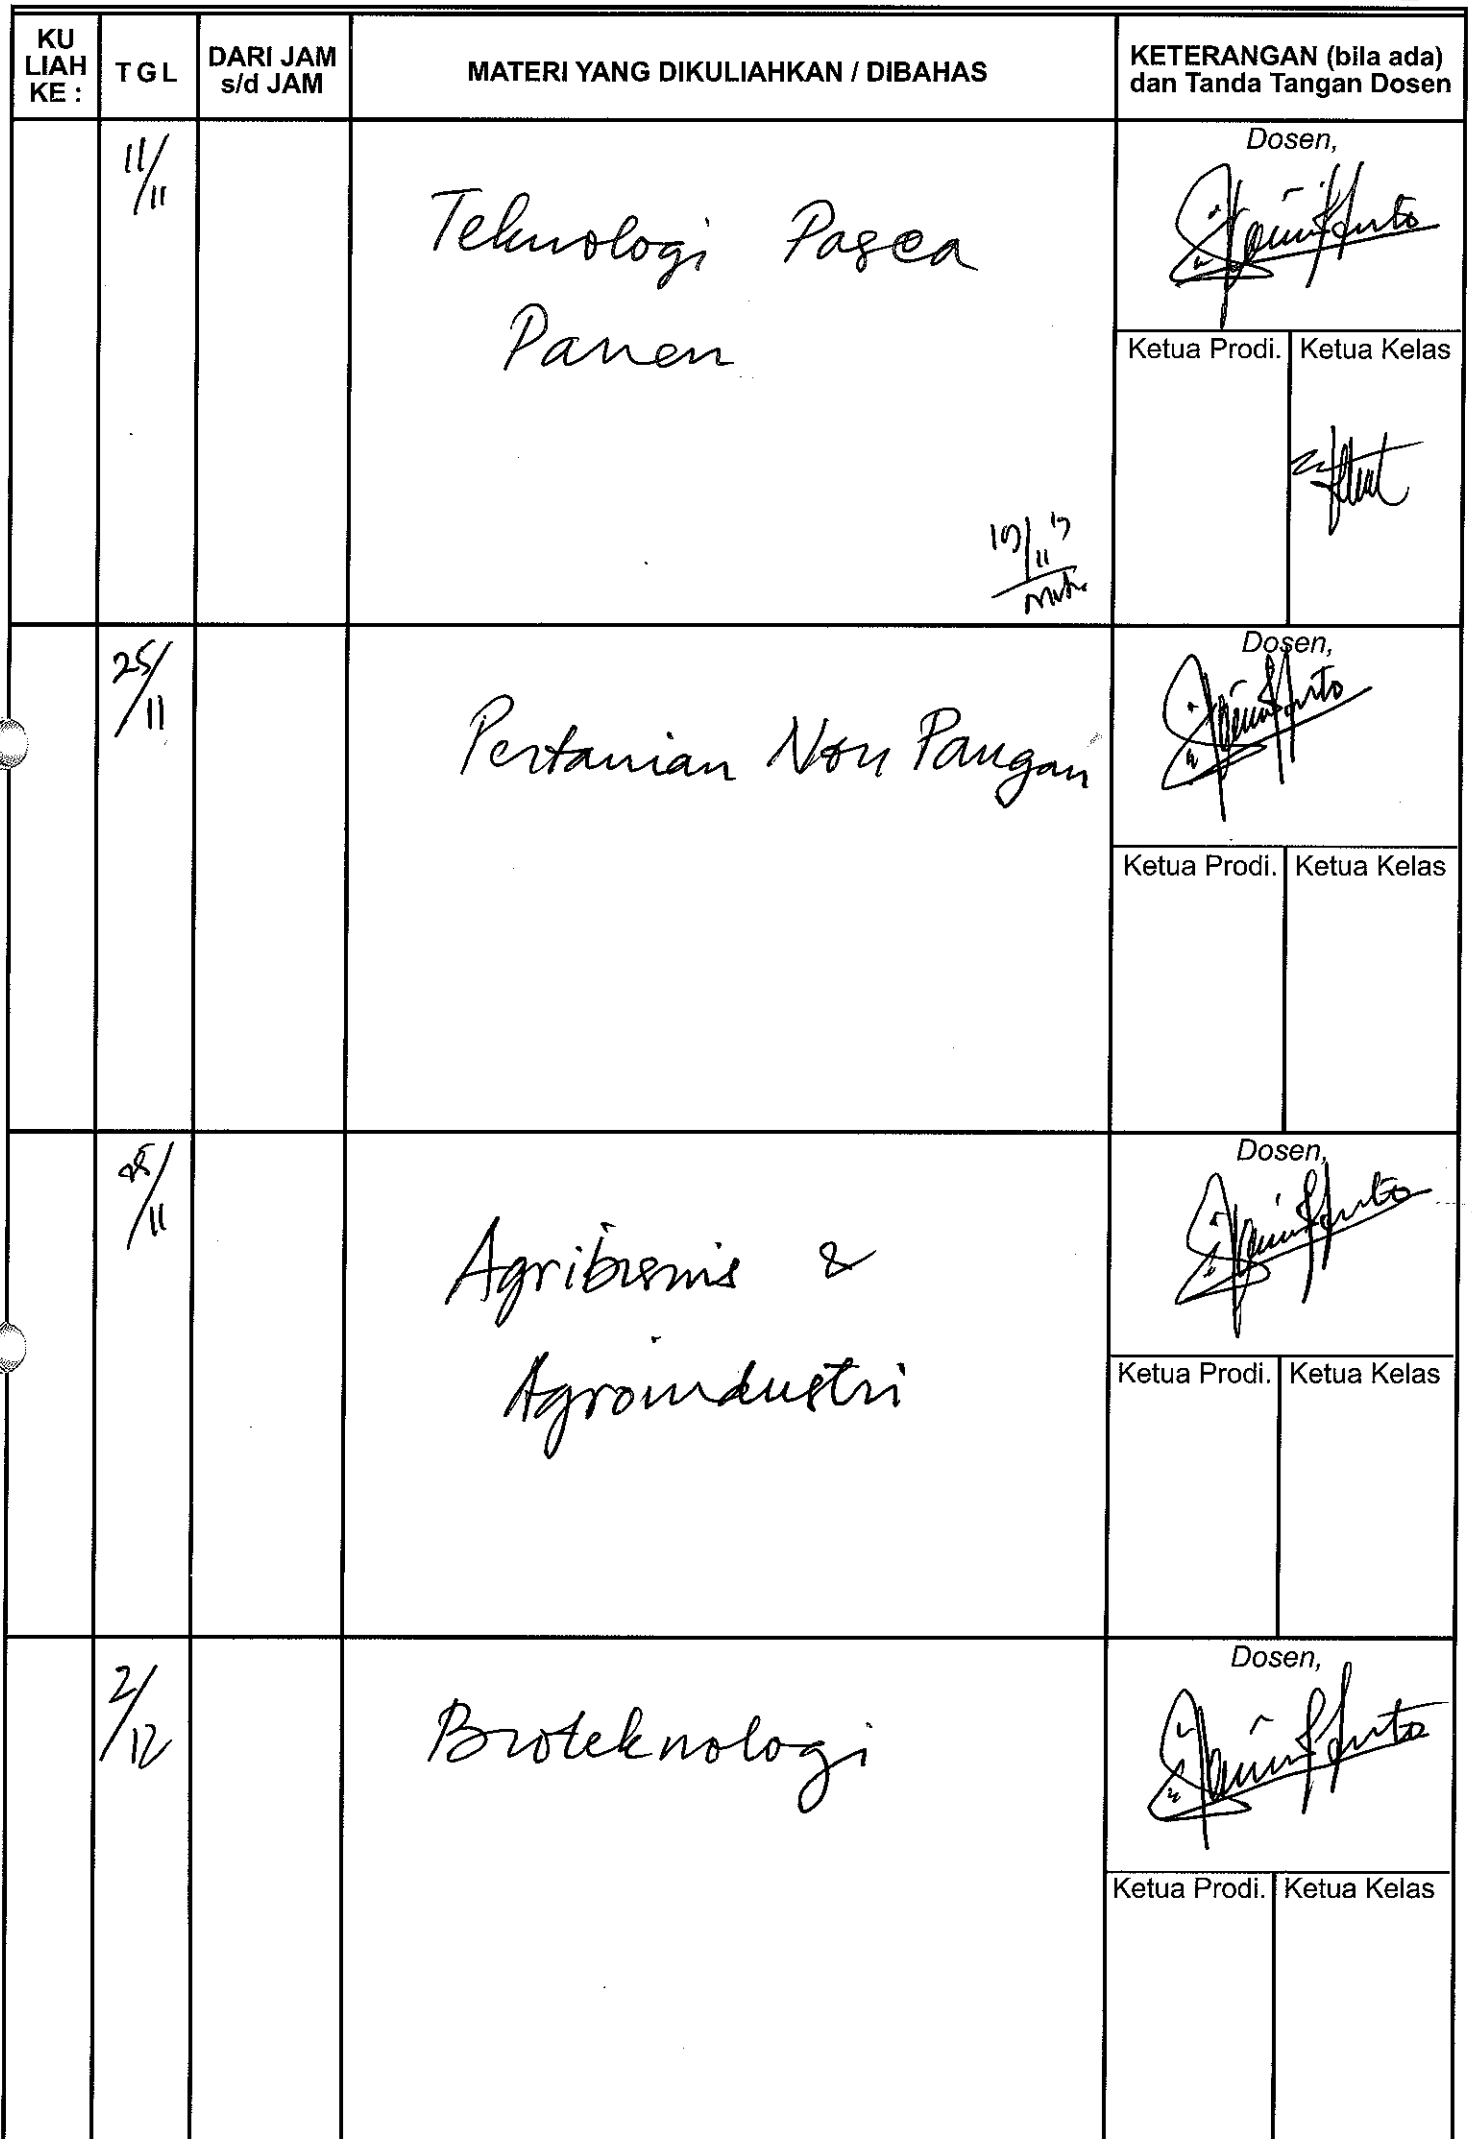 KU LIAH KE : TGL DARI JAM s/d JAM MATERI YANG DIKULIAHKAN / DIBAHAS KETERANGAN (bila ada) dan Tanda Tangan Dosen
11/11
Dosen,
Teknologi Pasca
Panen
Ketua Prodi. Ketua Kelas
25/11
Dosen,
Pertanian Non Pangan
Ketua Prodi. Ketua Kelas
Dosen,
Agribisnis &
Agroindustri
Ketua Prodi. Ketua Kelas
2/12
Dosen,
Bioteknologi
Ketua Prodi. Ketua Kelas